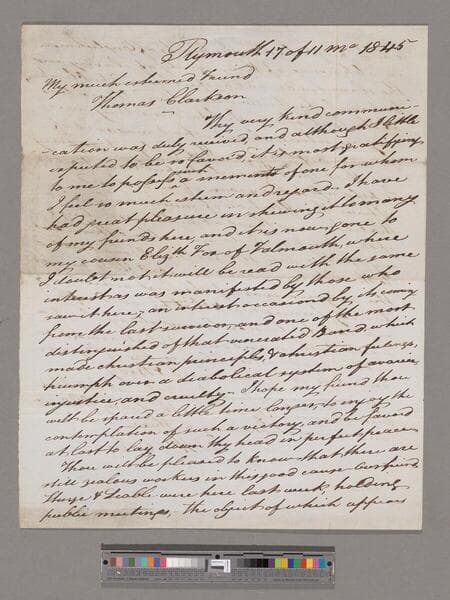 Plymouth 17 of 11 mo 1845
My much esteemed Friend
Thomas Clarkson
Thy very kind communi-
-cation was duly received, and although I little
expected to be so favored, it is most gratifying
to me to possess such a memento of one for whom
I feel so much esteem and regard. I have
had great pleasure in shewing it to many
of my friends here, and it is now gone to
my cousin Elizth Fox of Falmouth, where
I doubt not it will be read with the same
interest as was manifested by those who
saw it here; an interest occasioned by its coming
from the last survivor, and one of the most
distinguished of that venerated Band which
made christian principle, & christian feelings,
triumph over a diabolical system of avarice,
injustice, and cruelty. I hope my friend thou
will be spared a little time longer, to enjoy the
contemplation of such a victory, and be favord
at last to lay down thy head in perfect peace.
Thou will be pleased to know that there are
still zealous workers in this good cause. Our friends
Sturge & Scoble were here last week, holding
public meetings, the object of which appears